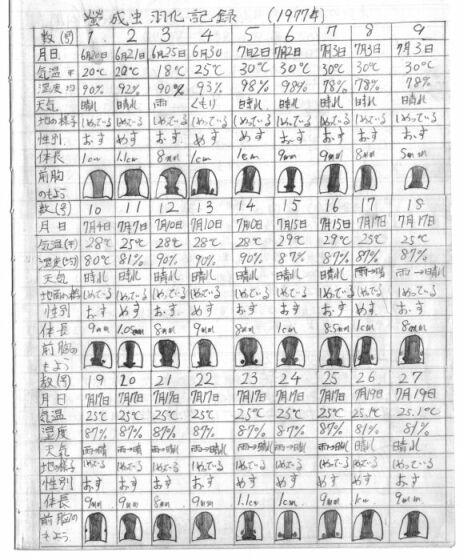 螢成虫羽化記録 (1977年)
数(号) 1 2 3 4 5 6 7 8 9
月日 6月20日 6月21日 6月25日 6月30 7月2日 7月2日 7月3日 7月3日 7月3日
気温 平 20℃ 20℃ 18℃ 25℃ 30℃ 30℃ 30℃ 30℃ 30℃
湿度 均 90% 92% 90% 93% 98% 98% 78% 78% 78%
天気 晴れ 晴れ 雨 くもり 晴れ 晴れ 晴れ 晴れ 晴れ
地の様子 しめっている しめっている しめっている しめっている しめっている しめっている しめっている しめっている しめっている
性別 おす めす おす めす めす めす おす おす おす
体長 1cm 1.1cm 8mm 1cm 1cm 9mm 9mm 8mm 5mm
前胸
のもよう
数(号) 10 11 12 13 14 15 16 17 18
月日 7月4日 7月7日 7月10日 7月10日 7月10日 7月15日 7月15日 7月17日 7月17日
気温(平) 28℃ 25℃ 28℃ 28℃ 28℃ 29℃ 29℃ 25℃ 25℃
湿度 80℃ 81% 90% 90% 90% 87% 87% 87% 87%
天気 晴れ 晴れ 晴れ 晴れ 晴れ 晴れ 晴れ 雨→晴 雨→晴れ
地面の様 しめっている しめっている しめっている しめっている しめっている しめっている しめっている しめっている しめっている
性別 おす めす おす おす おす めす おす めす おす
体長 9mm 8mm 9mm 8mm 1cm 8.5mm 1cm 8mm
前胸の
もよう
数(号) 19 20 21 22 23 24 25 26 27
月日 7月17日 7月17日 7月17日 7月17日 7月17日 7月17日 7月17日 7月19日 7月19日
気温 25℃ 25℃ 25℃ 25℃ 25℃ 25℃ 25℃ 25.1℃ 25.1℃
湿度 87% 87% 87% 87% 87% 87% 87% 81% 81%
天気 雨→晴 雨→晴れ 雨→晴れ 雨→晴れ 雨→晴れ 雨→晴れ 雨→晴れ 晴れ 晴れ
地の様子 しめっている しめっている しめっている しめっている しめっている しめっている しめっている しめっている しめっている
性別 おす おす おす おす めす めす おす めす おす
体長 9mm 9mm 8mm 9mm 1.1cm 1cm 9mm 9mm
前胸の
もよう